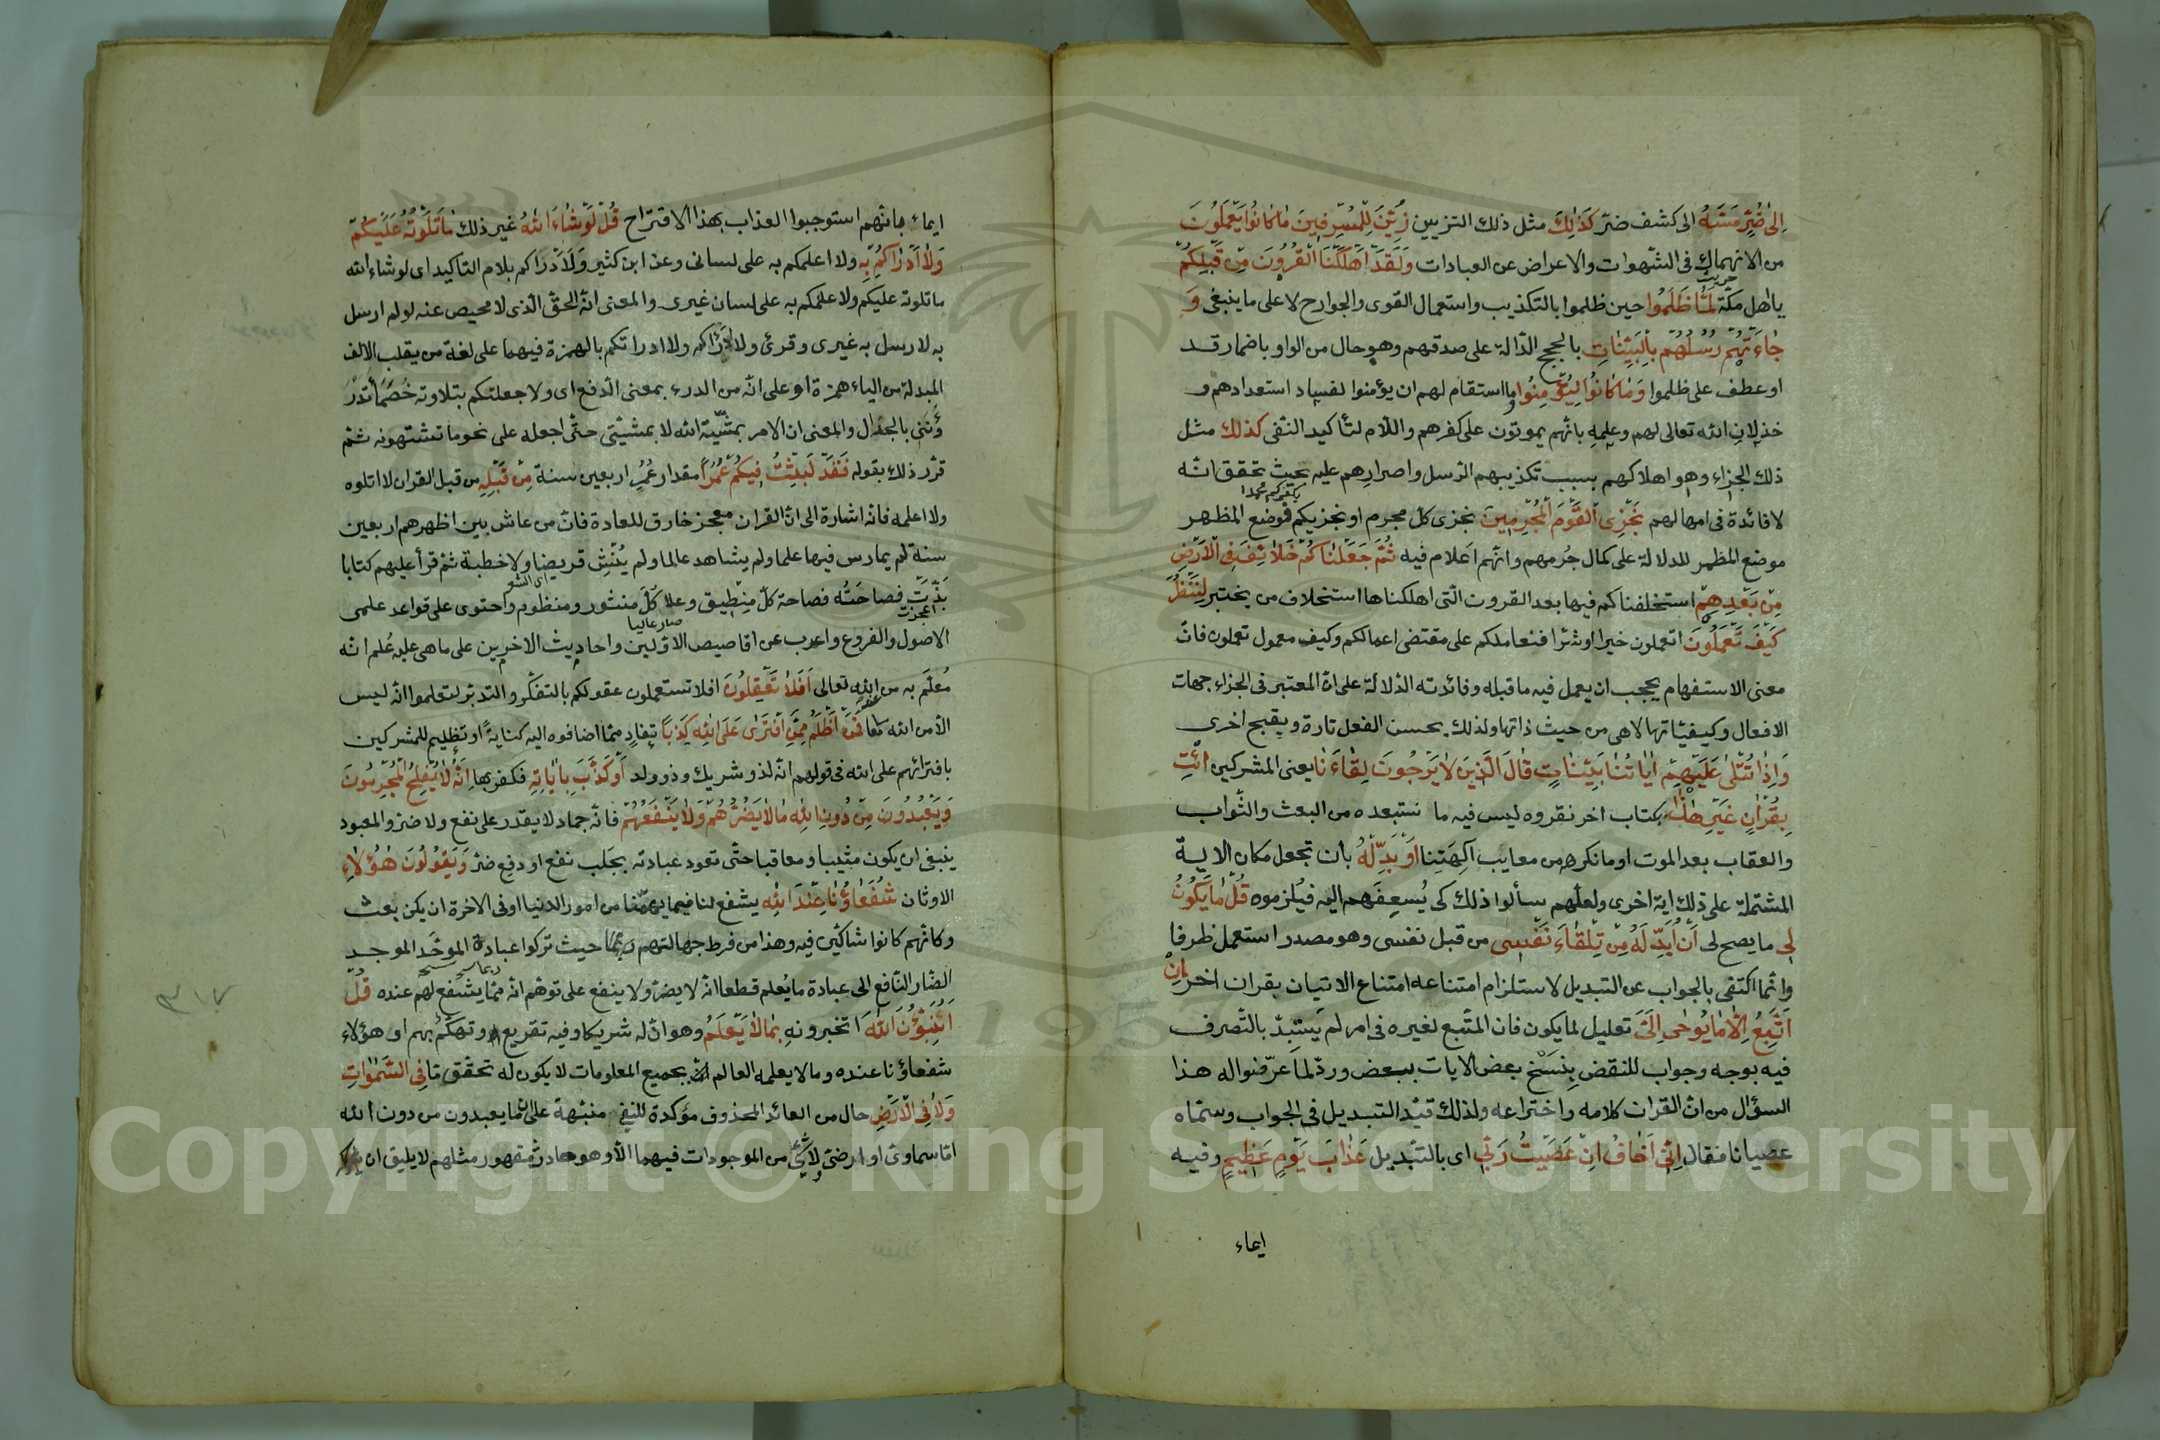 إِلىٰ ضُرٍّ مَسَّهُ الى كشف ضرّ كَذٰلِكَ مثل ذلك التزيين زُيِّنَ لِلْمُسْرِفِينَ مٰا كٰانُوا يَعْمَلُونَ
من الانهماك فى الشهوات والاعراض عن العبادات وَلَقَدْ اَهْلَكْنَا الْقُرُونَ مِنْ قَبْلِكُمْ
يا اهل مكّة لَمَّا ظَلَمُوا حين ظلموا بالتكذيب واستعمال القوى والجوارح لا على ما ينبغى وَ
جٰاءَتْهُمْ رُسُلُهُمْ بِالْبَيِّنٰاتِ بالحجج الدّالة على صدقهم وهو حال من الواو باضمار قد
او عطف على ظلموا وَمٰا كٰانُوا لِيُؤْمِنُوا وما استقام لهم ان يؤمنوا لفساد استعدادهم و
خذلان الله تعالى لهم وعلمِهِ بانّهم يموتون على كفرهم واللّام لتأكيد النفى كَذٰلِكَ مثل
ذلك الجزاء وهو اهلاكهم بسبب تكذيبهم الرّسل واصرارِهم عليه بحيث تحقق انّه
لا فائدة فى امهالهم نَجْزِى الْقَوْمَ الْمُجْرِمِينَ نجزى كلّ مجرم او نجزيكم فوضع المظهر
موضع المظمر للدلالة على كمال جُرمهم وانّهم اَعلام فيه ثُمَّ جَعَلْنٰاكُمْ خَلٰائِفَ فِى الْاَرْضِ
مِنْ بَعْدِهِمْ استخلفناكم فيها بعد القرون الّتى اهلكناها استخلاف من يختبر لِنَنْظُرَ
كَيْفَ تَعْمَلُونَ اتعملون خيرا او شرّا فنعاملكم على مقتضى اعمالكم وكيف معمول تعملون فانّ
معنى الاستفهام يحجب ان يعمل فيه ما قبله وفائدته الدّلالة على انّ المعتبر فى الجزاء جهات
الافعال وكيفيّاتها لا هى من حيث ذاتها ولذلك يحسن الفعل تارة ويقبح اخرى
وَاِذٰا تُتْلىٰ عَلَيْهِمْ اٰيٰاتُنٰا بَيِّنٰاتٍ قٰالَ الَّذِينَ لٰا يَرْجُونَ لِقٰاءَنٰا يعنى المشركين ائْتِ
بِقُرْاٰنٍ غَيْرِ هٰذٰا بكتاب اخر نقروه ليس فيه ما نستبعده من البعث والثّواب
والعقاب بعد الموت او ما نكرهه من معايب آلهَتِنا اَوْ بَدِّلْهُ بان تجعل مكان الاية
المشتملة على ذلك اية اخرى ولعلّهم سألوا ذلك كى يُسعِفَهم اليه فيُلزموه قُلْ مٰا يَكُونُ
لِى ما يصح لى اَنْ اُبَدِّلَهُ مِنْ تِلْقٰاءِ نَفْسِى من قبل نفسى وهو مصدر استعمل ظرفا
وانّما اكتفى بالجواب عن التبديل لاستلزام امتناعه امتناع الاتيان بقران اخر اِنْ
اَتَّبِعُ اِلّٰا مٰا يُوحٰى اِلَىَّ تعليل لما يكون فان المتّبع لغيره فى امر لم يَستبِدّ بالتّصرف
فيه بوجه وجواب للنقض بِنسْخِ بعض الآيات ببعض وردّ لمَا عرّضوا له هذا
السؤال من انّ القران كلامه واختراعه ولذلك قيّد التبديل فى الجواب وسمّاه
عصيانا فقال اِنِّى اَخٰافُ اِنْ عَصَيْتُ رَبِّى اى بالتّبديل عَذٰابَ يَوْمٍ عَظِيمٍ وفيه
ايماء
ايماء بانّهم استوجبوا العذاب بهذا الاقتراح قُلْ لَوْ شٰاءَ اللهُ غير ذلك مٰا تَلَوْتُهُ عَلَيْكُمْ
وَلٰا اَدْرٰاكُمْ بِهِ ولا اعلمكم به على لسانى وعن ابن كثير وَلَاَدْرٰاكم بلام التاكيد اى لو شاء الله
ما تلوته عليكم ولا علمكم به على لسان غيرى والمعنى انّه الحقّ الّذى لا محيص عنه لو لم ارسل
به لارسل به غيرى وقرئ ولا ادرأكم ولا ادراتكم بالهمزة فيهما على لغة من يقلب الالف
المبدلة من الياء همزة او على انّه من الدرء بمعنى الدّفع اى ولا جعلتكم بتلاوته خُصَمَاء تدْرَ
ؤُننى بالجدال والمعنى ان الامر بمشيّة الله لا بمشيئتى حتّى اجعله على نحو ما تشتهونه ثمّ
قرّر ذلك بقوله فَقَدْ لَبِثْتُ فِيكُمْ عُمُرًا مقدار عُمُرِ اربعين سنة مِنْ قَبْلِهِ من قبل القران لا اتلوه
ولا اعلمه فانّه اشارة الى انّ القران معجز خارق للعادة فانّ من عاش بين اظهرهم اربعين
سنة لم يمارس فيها علما ولم يشاهد عالما ولم يُنْشِ قريضا ولا خطبة ثمّ قرأ عليهم كتابا
بَذّتْ فصاحَتُه فصاحة كلّ مِنْطِيق وعلا كلّ منثور ومنظوم واحتوى على قواعد علمى
الاصول والفروع واعرب عن اقاصيص الاوّلين واحاديث الاخرين على ما هى عليه عُلم انّه
مُعلَّم به من الله تعالى اَفَلٰا تَعْقِلُونَ افلا تستعملون عقولكم بالتفكّر والتدبّر لتعلموا انّه ليس
الّا من الله تعا فَمَنْ اَظْلَمُ مِمَّنِ افْتَرٰى عَلَى اللهِ كَذِبًا تفادٍ ممّا اضافوه اليه كناية او تظليم للمشركين
بافترائهم على الله فى قولهم انّه لذو شريك وذو ولد اَوْ كَذَّبَ بِاٰيٰاتِهِ فكفر بها اِنَّهُ لٰا يُفْلِحُ الْمُجْرِمُونَ
وَيَعْبُدُونَ مِنْ دُونِ اللهِ مٰا لٰا يَضُرُّهُمْ وَلٰا يَنْفَعُهُمْ فانّه جماد لا يقدر على نفع ولا ضرّ والمعبود
ينبغى ان يكون مثيبا ومعاقبا حتّى تعود عبادته بجَلب نفع او دفع ضرّ وَيَقُولُونَ هٰؤُلٰاءِ
الاوثان شُفَعٰاؤُنٰا عِنْدَ اللهِ يشفع لنا فيما يهمّنا من امور الدنيا او فى الاخرة ان يكن بعث
وكانّهم كانوا شاكّين فيه وهذا من فرط جهالتهم حيث تركوا عبادة الموجد
الضّار النّافع الى عبادة ما يُعلم قطعا انّه لا يضرّ ولا ينفع على توهّم انّه ربما يشفع لهم عنده قُلْ
اَتُنَبِّؤُنَ اللهَ اتخبرونهِ بِمٰا لٰا يَعْلَمُ وهو انّ له شريكا وفيه تقريع وتهكّم بهم او هؤلاء
شفعاؤنا عنده وما لا يعلمه العالم بجميع المعلومات لا يكون له تحقّق مّا فِى السَّمٰوٰاتِ
وَلٰا فِى الْاَرْضِ حال من العائد المحذوف مؤكدة للنفى منبّهة على انّ ما يعبدون من دون الله
امّا سماوىّ او ارضىّ ولا شئ من الموجودات فيهما الّا وهو حادث مقهور مثلهم لا يليق ان